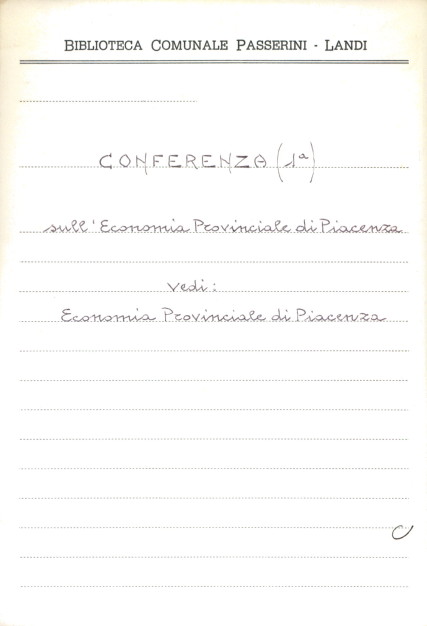 BIBLIOTECA COMUNALE PASSERINI - LANDI
CONFERENZA (1ª)
sull'Economia Provinciale di Piacenza
vedi:
Economia Provinciale di Piacenza
C